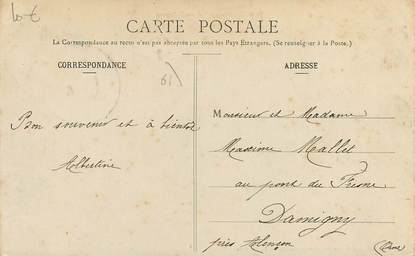 10 €
CARTE POSTALE
La Correspondance au recto n'est pas acceptée par tous les Pays Etrangers. (Se renseigner à la Poste.)
CORRESPONDANCE
ADRESSE
61
Bon souvenir et à bientôt
Albertine
Monsieur et Madame
Maxime Mallet
au pont du Fresne
Damigny
près Alençon
(Orne)